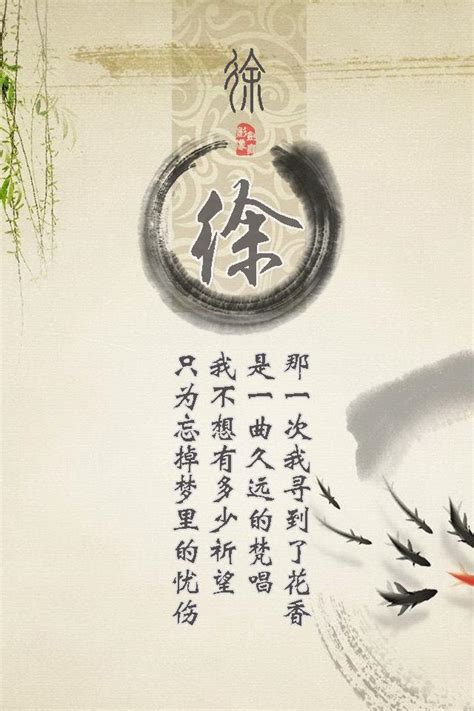 徐
徐
那一次我寻到了花香
是一曲久远的梵唱
我不想有多少祈望
只为忘掉梦里的忧伤